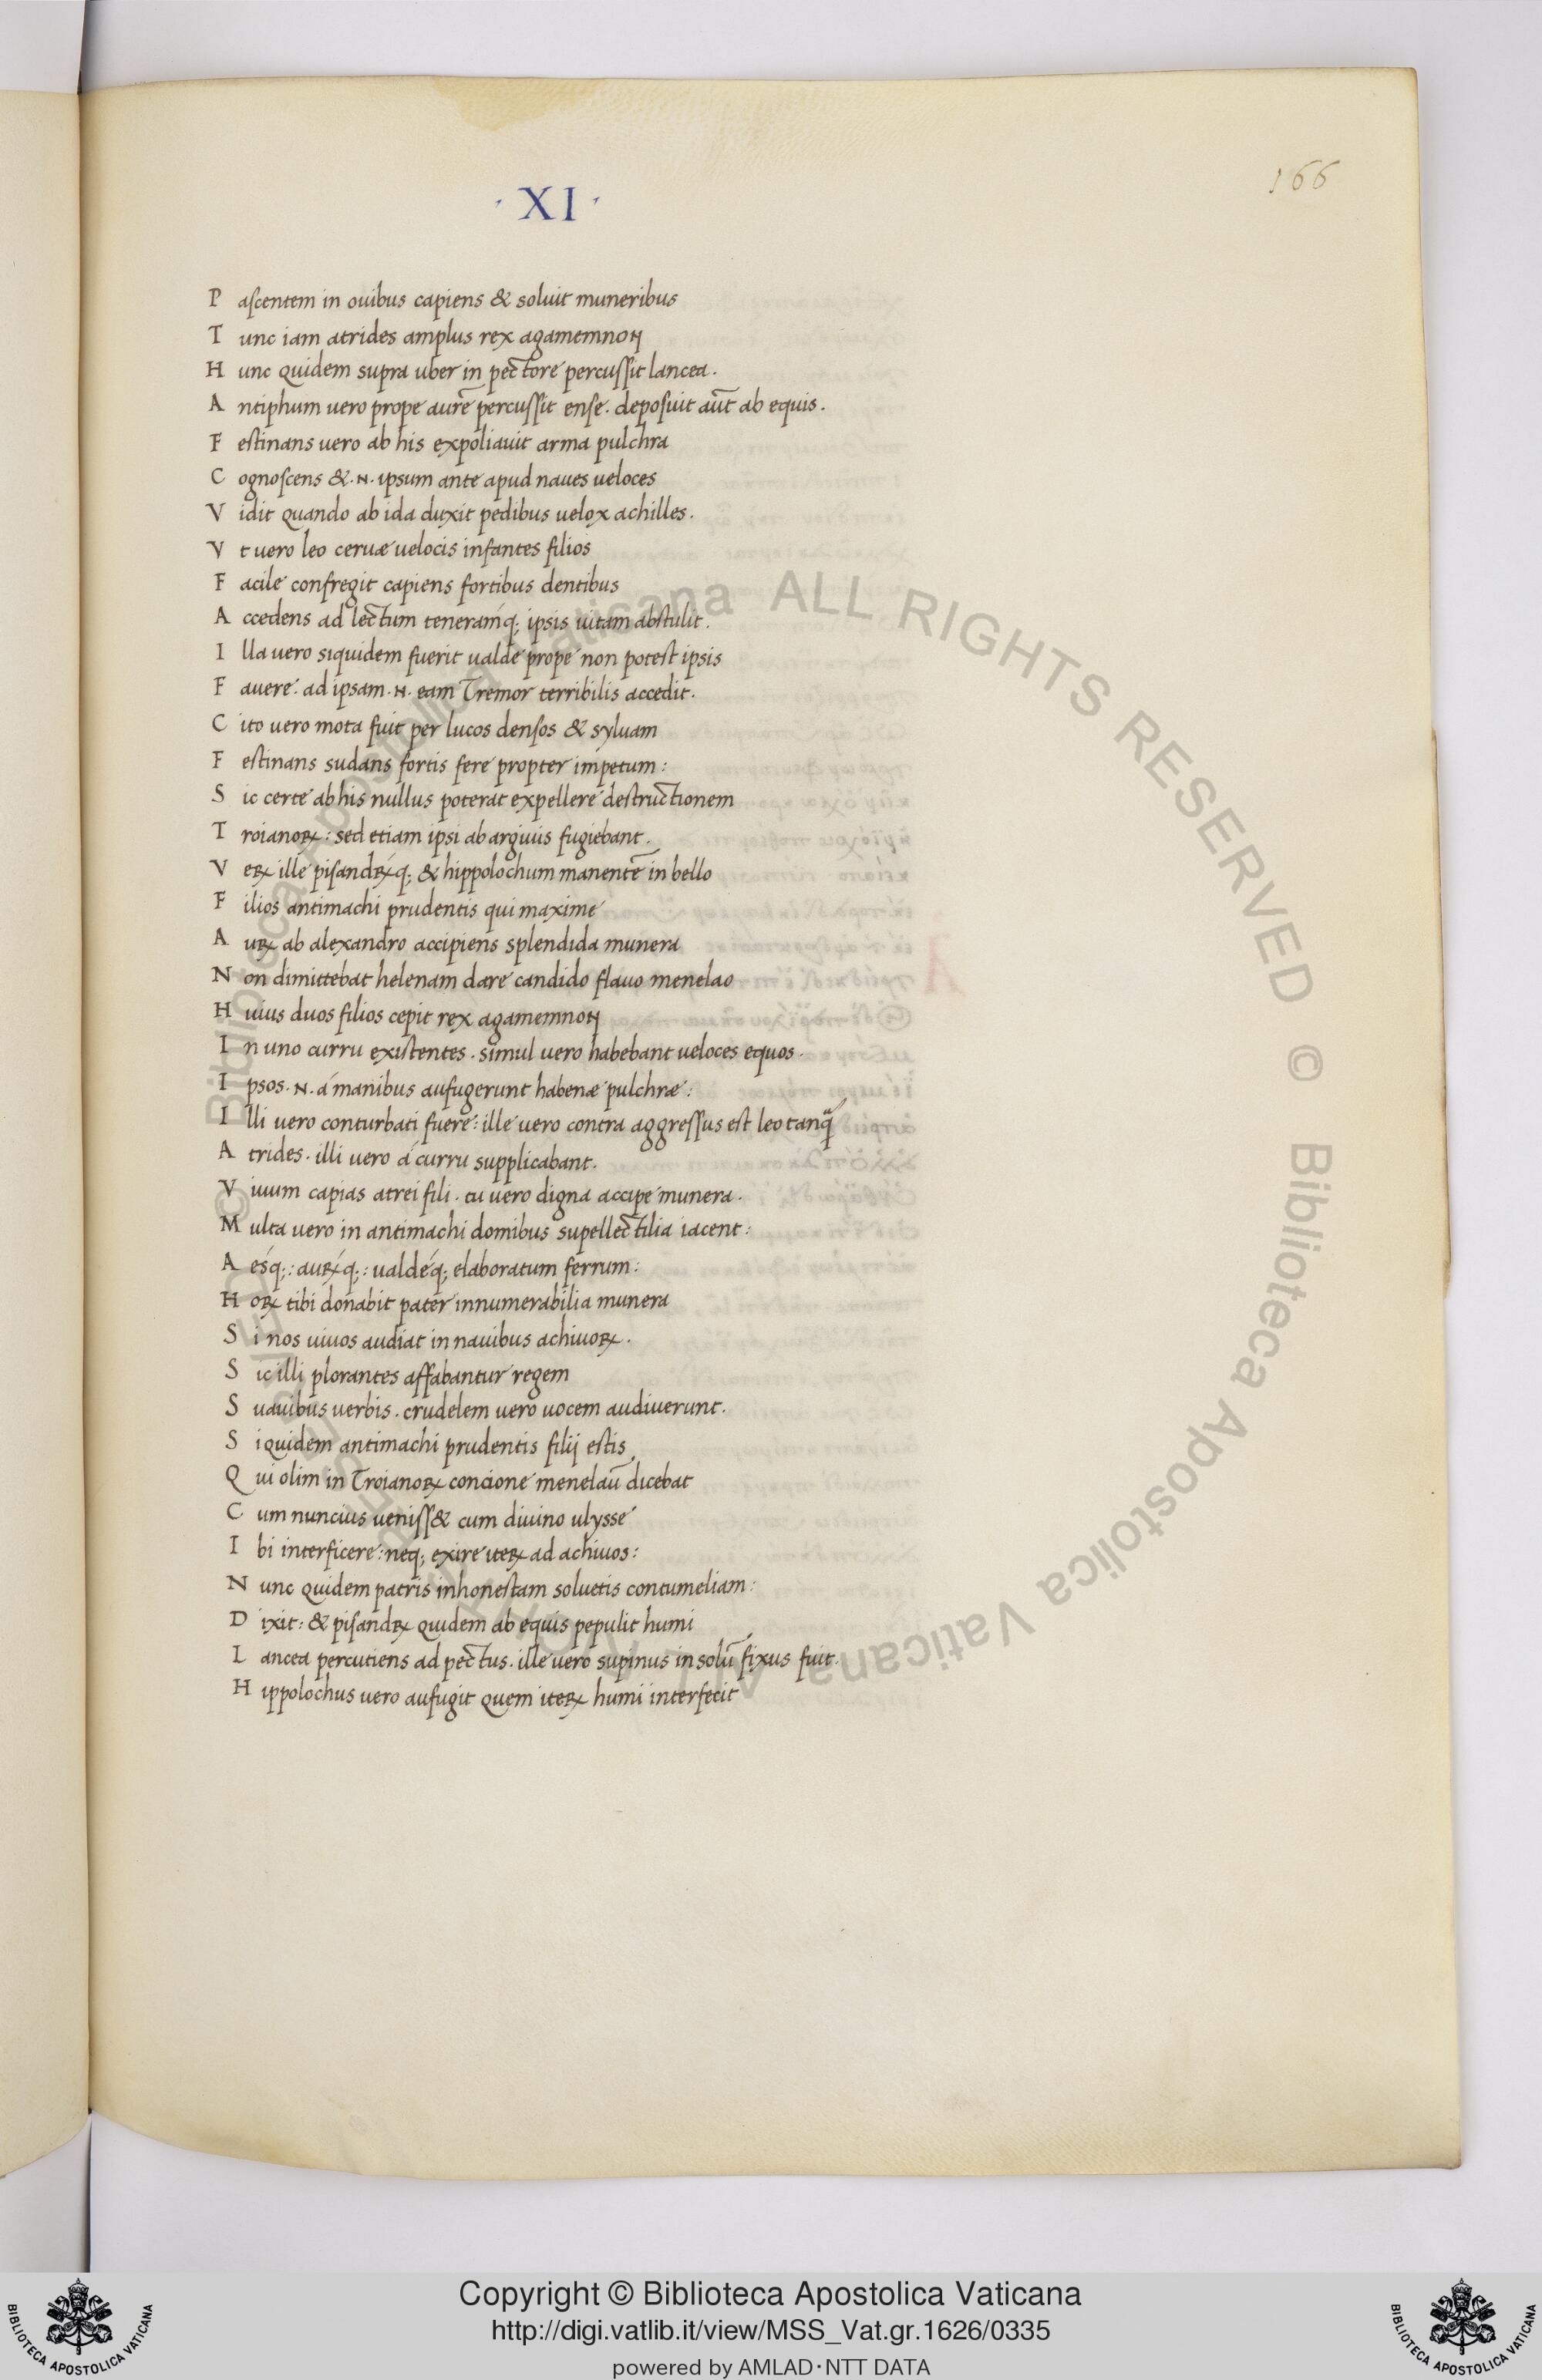 · XI ·
166
P ascentem in ouibus capiens & soluit muneribus
T unc iam atrides amplus rex agamemnon
H unc quidem supra uber in pectore percussit lancea .
A ntiphum uero prope aurē percussit ense . deposuit aūt ab equis .
F estinans uero ab his expoliauit arma pulchra
C ognoscens & . N . ipsum ante apud naues ueloces
V idit quando ab ida duxit pedibus uelox achilles .
V t uero leo ceruæ uelocis infantes filios
F acile confregit capiens fortibus dentibus
A ccedens ad lectum teneramq; ipsis uitam abstulit .
I lla uero siquidem fuerit ualde prope non potest ipsis
F auere : ad ipsam . N . eam Tremor terribilis accedit .
C ito uero mota fuit per lucos densos & syluam
F estinans sudans fortis fere propter impetum :
S ic certe ab his nullus poterat expellere destructionem
T roianoꝝ : sed etiam ipsi ab argiuis fugiebant .
V eꝝ ille pisandꝝq; & hippolochum manentē in bello
F ilios antimachi prudentis qui maxime
A uꝝ ab alexandro accipiens splendida munera
N on dimittebat helenam dare candido flauo menelao
H uius duos filios cepit rex agamemnon
I n uno curru existentes . simul uero habebant ueloces equos .
I psos . N . á manibus aufugerunt habenæ pulchræ :
I lli uero conturbati fuere : ille uero contra aggressus est leo tanq̃
A trides . illi uero á curru supplicabant .
V iuum capias atrei fili . tu uero digna accipe munera .
M ulta uero in antimachi domibus supellectilia iacent :
A esq; : auꝝq; : ualdeq; elaboratum ferrum :
H oꝝ tibi donabit pater innumerabilia munera
S i nos uiuos audiat in nauibus achiuoꝝ .
S ic illi plorantes affabantur regem
S uauibus uerbis . crudelem uero uocem audiuerunt .
S iquidem antimachi prudentis filij estis
Q ui olim in Troianoꝝ concione menelaū dicebat
C um nunciusueniss& cum diuino ulysse
I bi interficere : neq; exire iteꝝ ad achiuos :
N unc quidem patris inhonestam soluetis contumeliam :
D ixit : & pisandꝝ quidem ab equis pepulit humi
L ancea percutiens ad pectus . ille uero supinus in solū fixus fuit .
H ippolochus uero aufugit quem iteꝝ humi interfecit
© Biblioteca Apostolica Vaticana ALL RIGHTS RESERVED © Biblioteca Apostolica Vaticana ALL RIGHTS RESERVED
Copyright © Biblioteca Apostolica Vaticana
http://digi.vatlib.it/view/MSS_Vat.gr.1626/0335
powered by AMLAD·NTT DATA
BIBLIOTECA APOSTOLICA VATICANA
BIBLIOTECA APOSTOLICA VATICANA